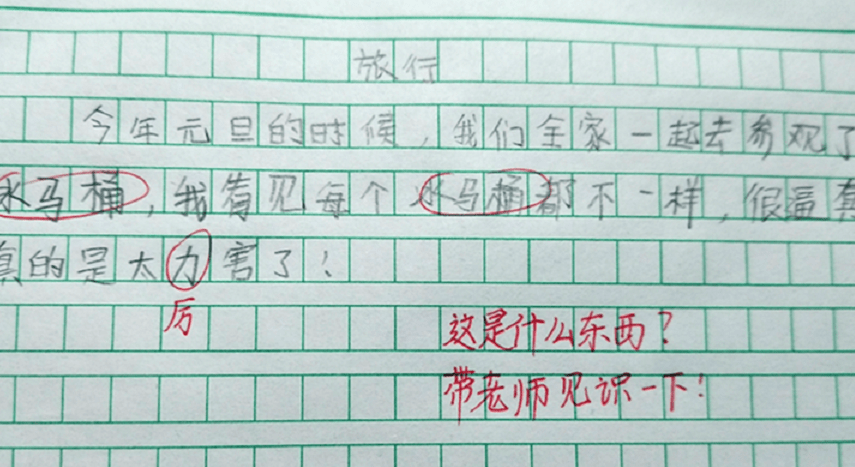 旅行
今年元旦的时候，我们全家一起去参观了
水马桶，我看见每个水马桶都不一样，很逼真
真的是太力害了！
厉
这是什么东西？
带老师见识一下！